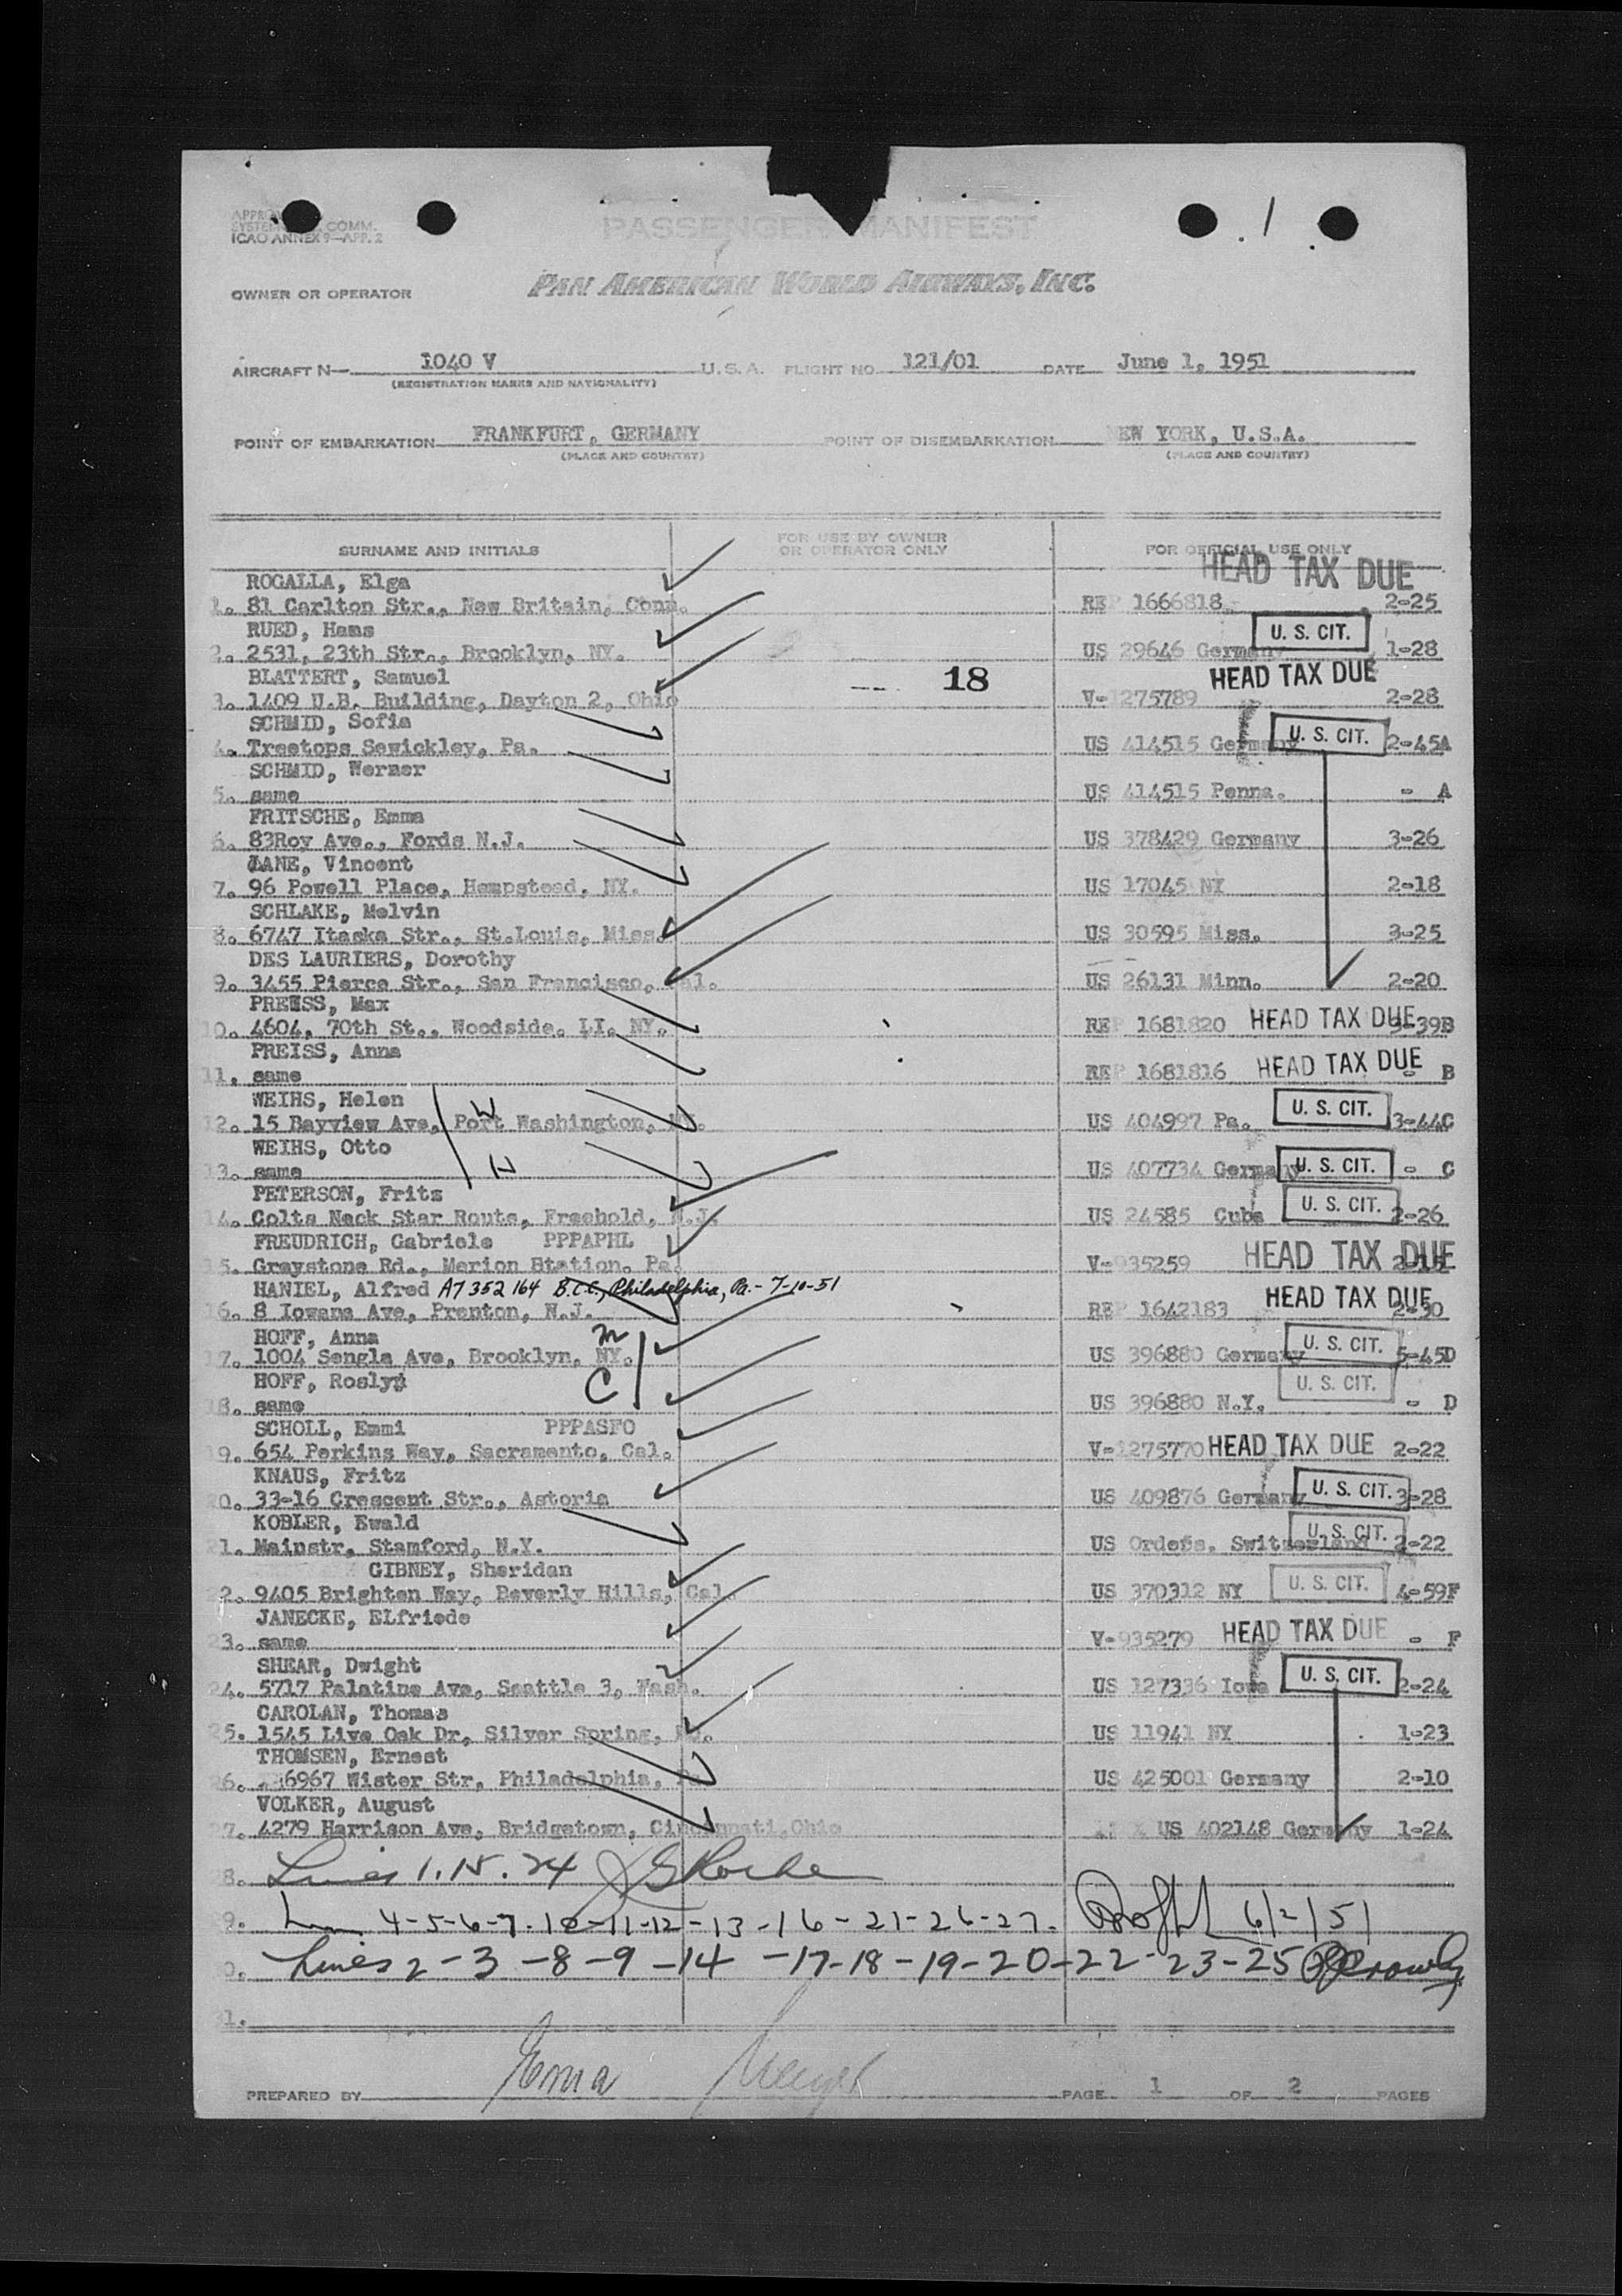 .1
PASSENGER MANIFEST
COMM.
ICAO ANNEX 9—APP. 2
OWNER OR OPERATOR PAN AMERICAN WORLD AIRWAYS, INC.
AIRCRAFT N— 1040 V U.S.A. FLIGHT NO. 121/01 DATE June 1, 1951
(REGISTRATION MARKS AND NATIONALITY)
POINT OF EMBARKATION FRANKFURT, GERMANY POINT OF DISEMBARKATION NEW YORK, U.S.A.
(PLACE AND COUNTRY) (PLACE AND COUNTRY)
SURNAME AND INITIALS FOR USE BY OWNER OR OPERATOR ONLY FOR OFFICIAL USE ONLY
ROGALLA, Elga HEAD TAX DUE
1. 81 Carlton Str., New Britain, Conn. REP 1666818 2-25
RUED, Hans U. S. CIT.
2. 2531, 23th Str., Brooklyn, NY. US 29646 Germany 1-28
BLATTERT, Samuel 18 HEAD TAX DUE
3. 1409 U.B. Building, Dayton 2, Ohio V-1275789 2-28
SCHMID, Sofia U. S. CIT.
4. Treetops Sewickley, Pa. US 414515 Germany 2-45A
SCHMID, Werner
5. same US 414515 Penna. - A
FRITSCHE, Emma
6. 83Roy Ave., Fords N.J. US 378429 Germany 3-26
LANE, Vincent
7. 96 Powell Place, Hempstead, NY. US 17045 NY 2-18
SCHLAKE, Melvin
8. 6747 Itaska Str., St.Louis, Miss. US 30595 Miss. 3-25
DES LAURIERS, Dorothy
9. 3455 Pierce Str., San Francisco, Cal. US 26131 Minn. 2-20
PREISS, Max
10. 4604, 70th St., Woodside. LI. NY. REP 1681820 HEAD TAX DUE 3-39B
PREISS, Anna
11. same REP 1681816 HEAD TAX DUE - B
WEIHS, Helen U. S. CIT.
12. 15 Bayview Ave, Port Washington, NY. W US 404997 Pa. 3-44C
WEIHS, Otto
13. same H US 407734 Germany U. S. CIT. - C
PETERSON, Fritz U. S. CIT.
14. Colts Neck Star Route, Freehold, N.J. US 24585 Cuba 2-26
FREUDRICH, Gabriele PPPAPHL
15. Graystone Rd., Merion Station. Pa. V-935259 HEAD TAX DUE
HANIEL, Alfred A7 352 164 B.C.C., Philadelphia, Pa. - 7-10-51
16. 8 Iowans Ave, Prenton, N.J. REP 1642183 HEAD TAX DUE 2-30
HOFF, Anna m
17. 1004 Sengla Ave, Brooklyn, NY. US 396880 Germany U. S. CIT. 5-45D
HOFF, Roslyn C U. S. CIT.
18. same US 396880 N.Y. - D
SCHOLL, Emmi PPPASFO
19. 654 Perkins Way, Sacramento, Cal. V-1275770 HEAD TAX DUE 2-22
KNAUS, Fritz
20. 33-16 Crescent Str., Astoria US 409876 Germany U. S. CIT. 3-28
KOBLER, Ewald
21. Mainstr. Stamford, N.Y. US Orders. Switzerland U. S. CIT. 2-22
GIBNEY, Sheridan
22. 9405 Brighten Way, Beverly Hills, Cal. US 370312 NY U. S. CIT. 4-59F
JANECKE, ELfriede
23. same V-935279 HEAD TAX DUE - F
SHEAR, Dwight
24. 5717 Palatine Ave, Seattle 3, Wash. US 127336 Iowa U. S. CIT. 2-24
CAROLAN, Thomas
25. 1545 Live Oak Dr, Silver Spring, US 11941 NY 1-23
THOMSEN, Ernest
26. 6967 Wister Str, Philadelphia, Pa US 425001 Germany 2-10
VOLKER, August
27. 4279 Harrison Ave, Bridgetown, Cincinnati,Ohio US 402148 Germany 1-24
28. Lines 1. 15. 24
29. 4-5-6-7-10-11-12-13-16-21-26-27. 6/2/51
30. Lines 2-3-8-9-14-17-18-19-20-22-23-25
31.
PREPARED BY Erna PAGE 1 OF 2 PAGES